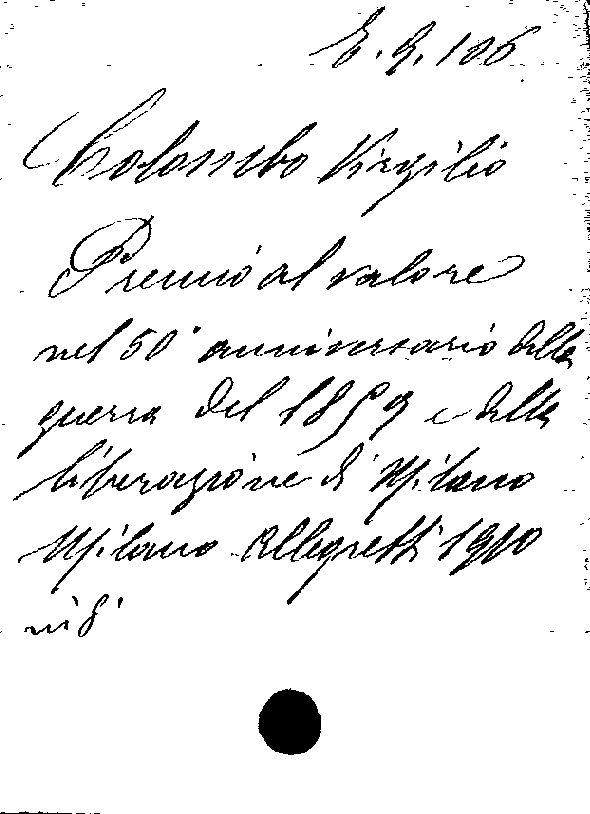 E. 9. 106
Colombo Virgilio
Premio al valore
nel 50° anniversario della
guerra del 1859 e della
liberazione di Milano
Milano Allegretti 1910
in 8°